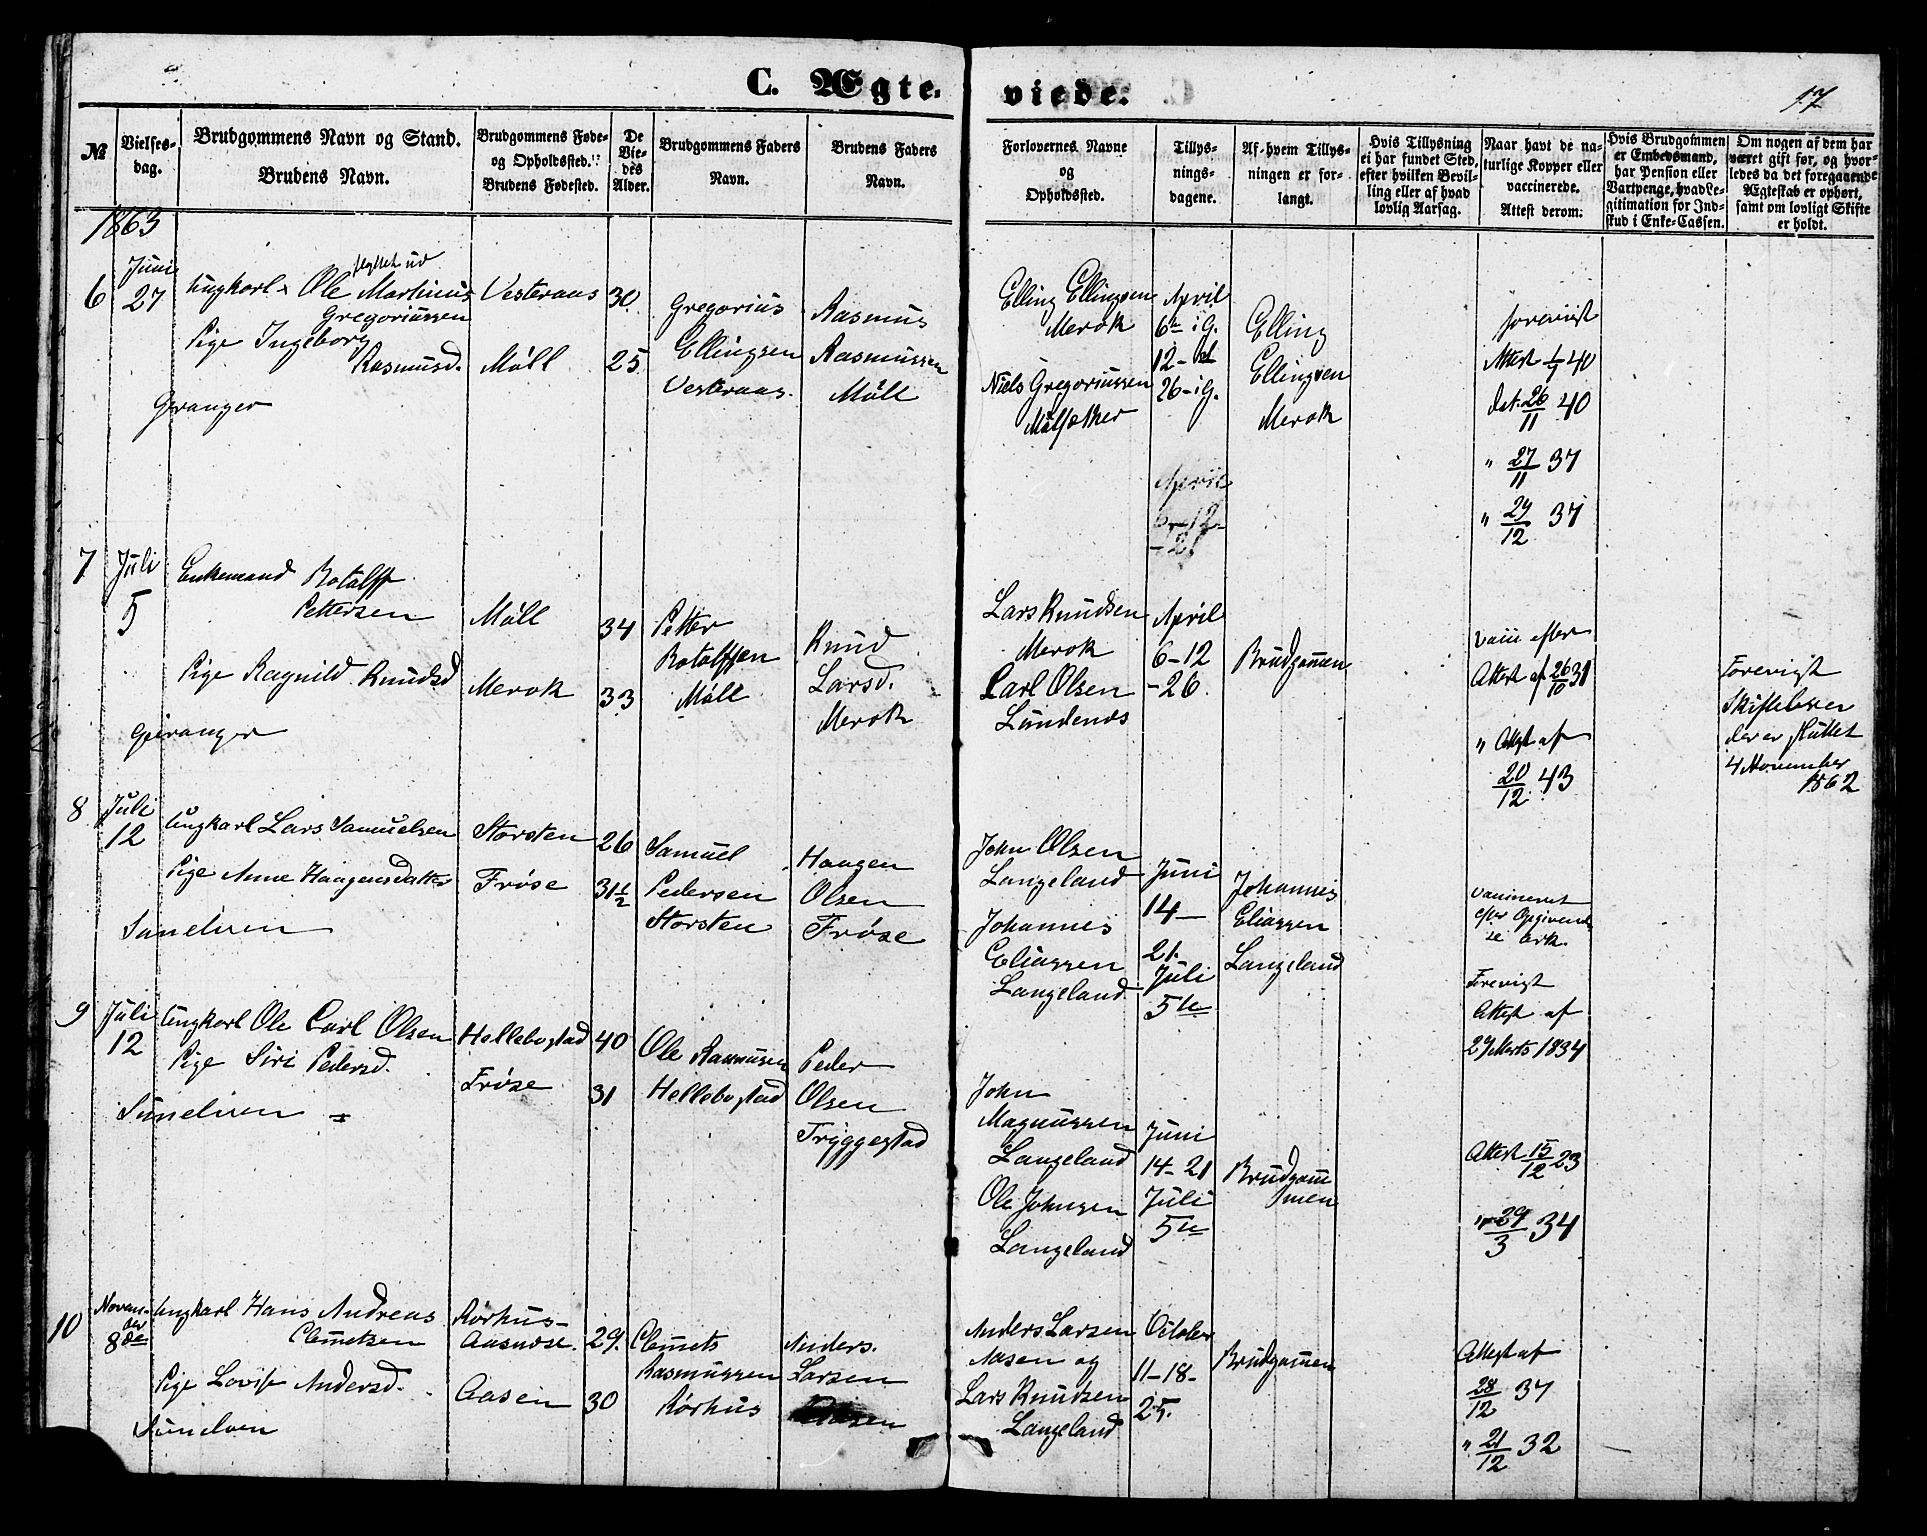 C. Ægte-
viede.
17
№
Vielses-
dag.
Brudgommens Navn og Stand.
Brudens Navn.
Brudgommens Føde-
og Opholdssted.
Brudens Fødested.
De
Vie-
des
Alder.
Brudgommens Faders
Navn.
Brudens Faders
Navn.
Forlovernes Navne
og
Opholdssted.
Tillys-
nings-
dagene.
Af hvem Tillys-
ningen er for-
langt.
Hvis Tillysning
ei har fundet Sted,
efter hvilken Bevil-
ling eller af hvad
lovlig Aarsag.
Naar havt de na-
turlige Kopper eller
vaccinerede.
Attest derom.
Hvis Brudgommen
er Embedsmand,
har Pension eller
Vartpenge, hvad Le-
gitimation for Ind-
skud i Enke-Cassen.
Om nogen af dem har
været gift før, og hvor-
ledes da det foregaaende
Ægteskab er ophørt,
samt om lovligt Skifte
er holdt.
1863
6
Juni
27
flyttet ud
Ungkarl Ole Martinus
Gregoriussen
Pige Ingeborg
Rasmusd.
Geranger
Vesteraas
Möll
30
25
Gregorius
Ellingsen
Vesteraas.
Rasmus
Rasmussen
Möll
Elling Ellingsen
Merok
Niels Gregoriussen
April
6te i G.
12-
26-i G.
Elling
Ellingsen
Merok
forevist
Attest 40
det. 26/11 40
" 27/11 37
" 29/12 37
April
6-12-
7
Juli
5
Enkemand Rotalff
Pettersen
Pige Ragnild Knudsd
Geiranger
Möll
Merok
34
33
Petter
Rotalffsen
Möll
Knud
Larsd.
Merok
Lars Knudsen
Merok
Carl Olsen
Lundenes
April
6-12
-26.
Brudgommen
vacc efter
Attest af 26/10 31
" Attest af
20/12 43
Forevist
Skiftebrev
der er sluttet
4 November
1862
8
Juli
12
Ungkarl Lars Samuelsen
Pige Anne Haagensdatter
Sunelven
Storsten
Frøse
26
31½
Samuel
Pedersen
Storsten
Haagen
Olsen
Frøse
John Olsen
Langeland
Johannes
Eliassen
Langeland
Juni
14-
21.
Juli
5te
Johannes
Eliassen
Langeland
vaccineret
efter Opgivend
se
Forevist
Attest af
29 Marts 1834
9
Juli
12
Ungkarl Ole Carl Olsen
Pige Siri Pedersd.
Sunelven
Hellebostad
Frøse
40
31
Ole Rasmusen
Hellebostad
Peder
Olsen
Tryggestad
John
Magnussen
Langeland
Ole Johnsen
Langeland
Juni
14-21
Juli
5te
Brudgom
men
Attest 15/12 23
" 29/3 34
10
Novem-
ber
8de
Ungkarl Hans Andreas
Clemetsen
Pige Lovise Andersd.
Sunelven
Rørhus-
Aasnæse
Aasen
29.
30
Clemets
Rasmussen
Rørhus
Anders.
Larsen
Anders Larsen
Aasen og
Lars Knudsen
Langeland
October
11-18-
25.
Brudgommen
Attest af
28/12 37
" 21/12 32